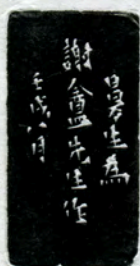 昌石生為
謝盦先生作
壬戌八月